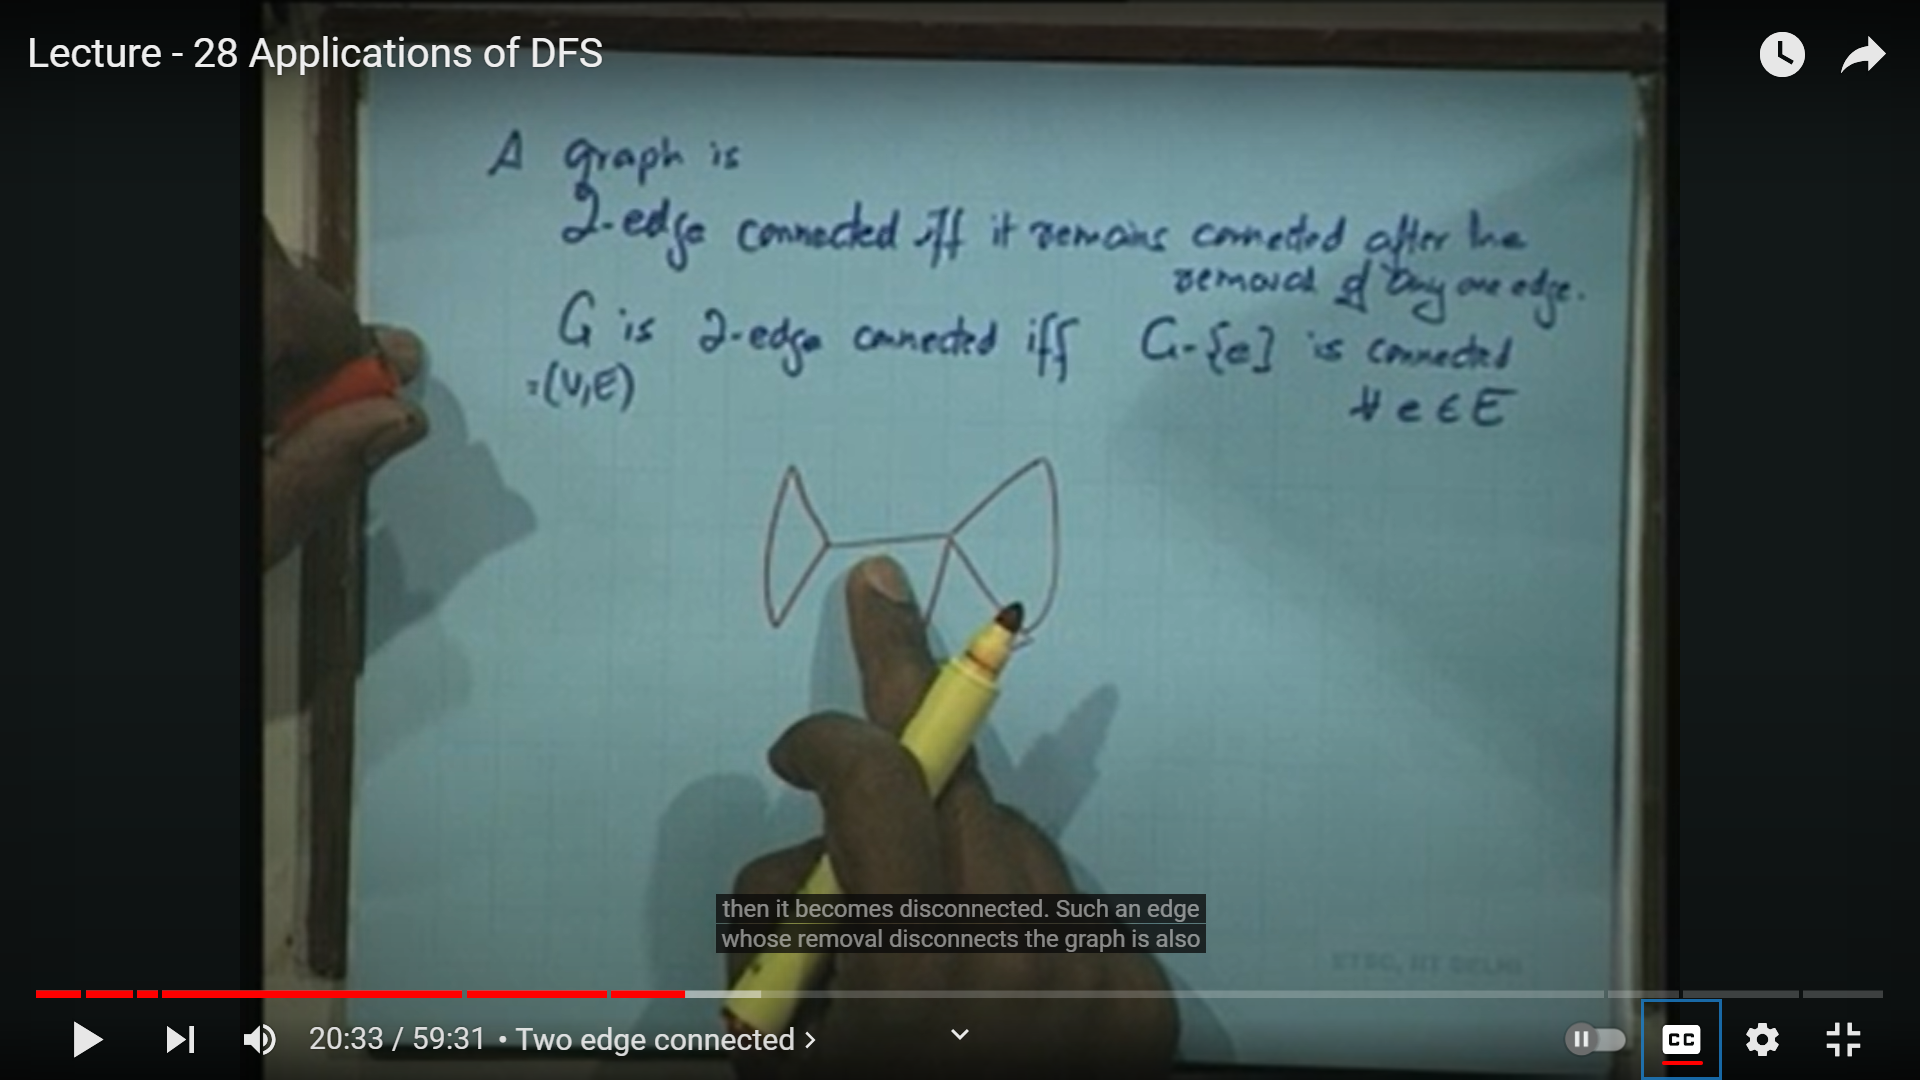 Lecture - 28 Applications of DFS
A graph is
2-edge connected iff it remains connected after the
removal of any one edge.
G is 2-edge connected iff G-{e} is connected
=(V,E)
∀ e ∈ E
then it becomes disconnected. Such an edge
whose removal disconnects the graph is also
ETSC, IIT DELHI
20:33 / 59:31 • Two edge connected >
CC